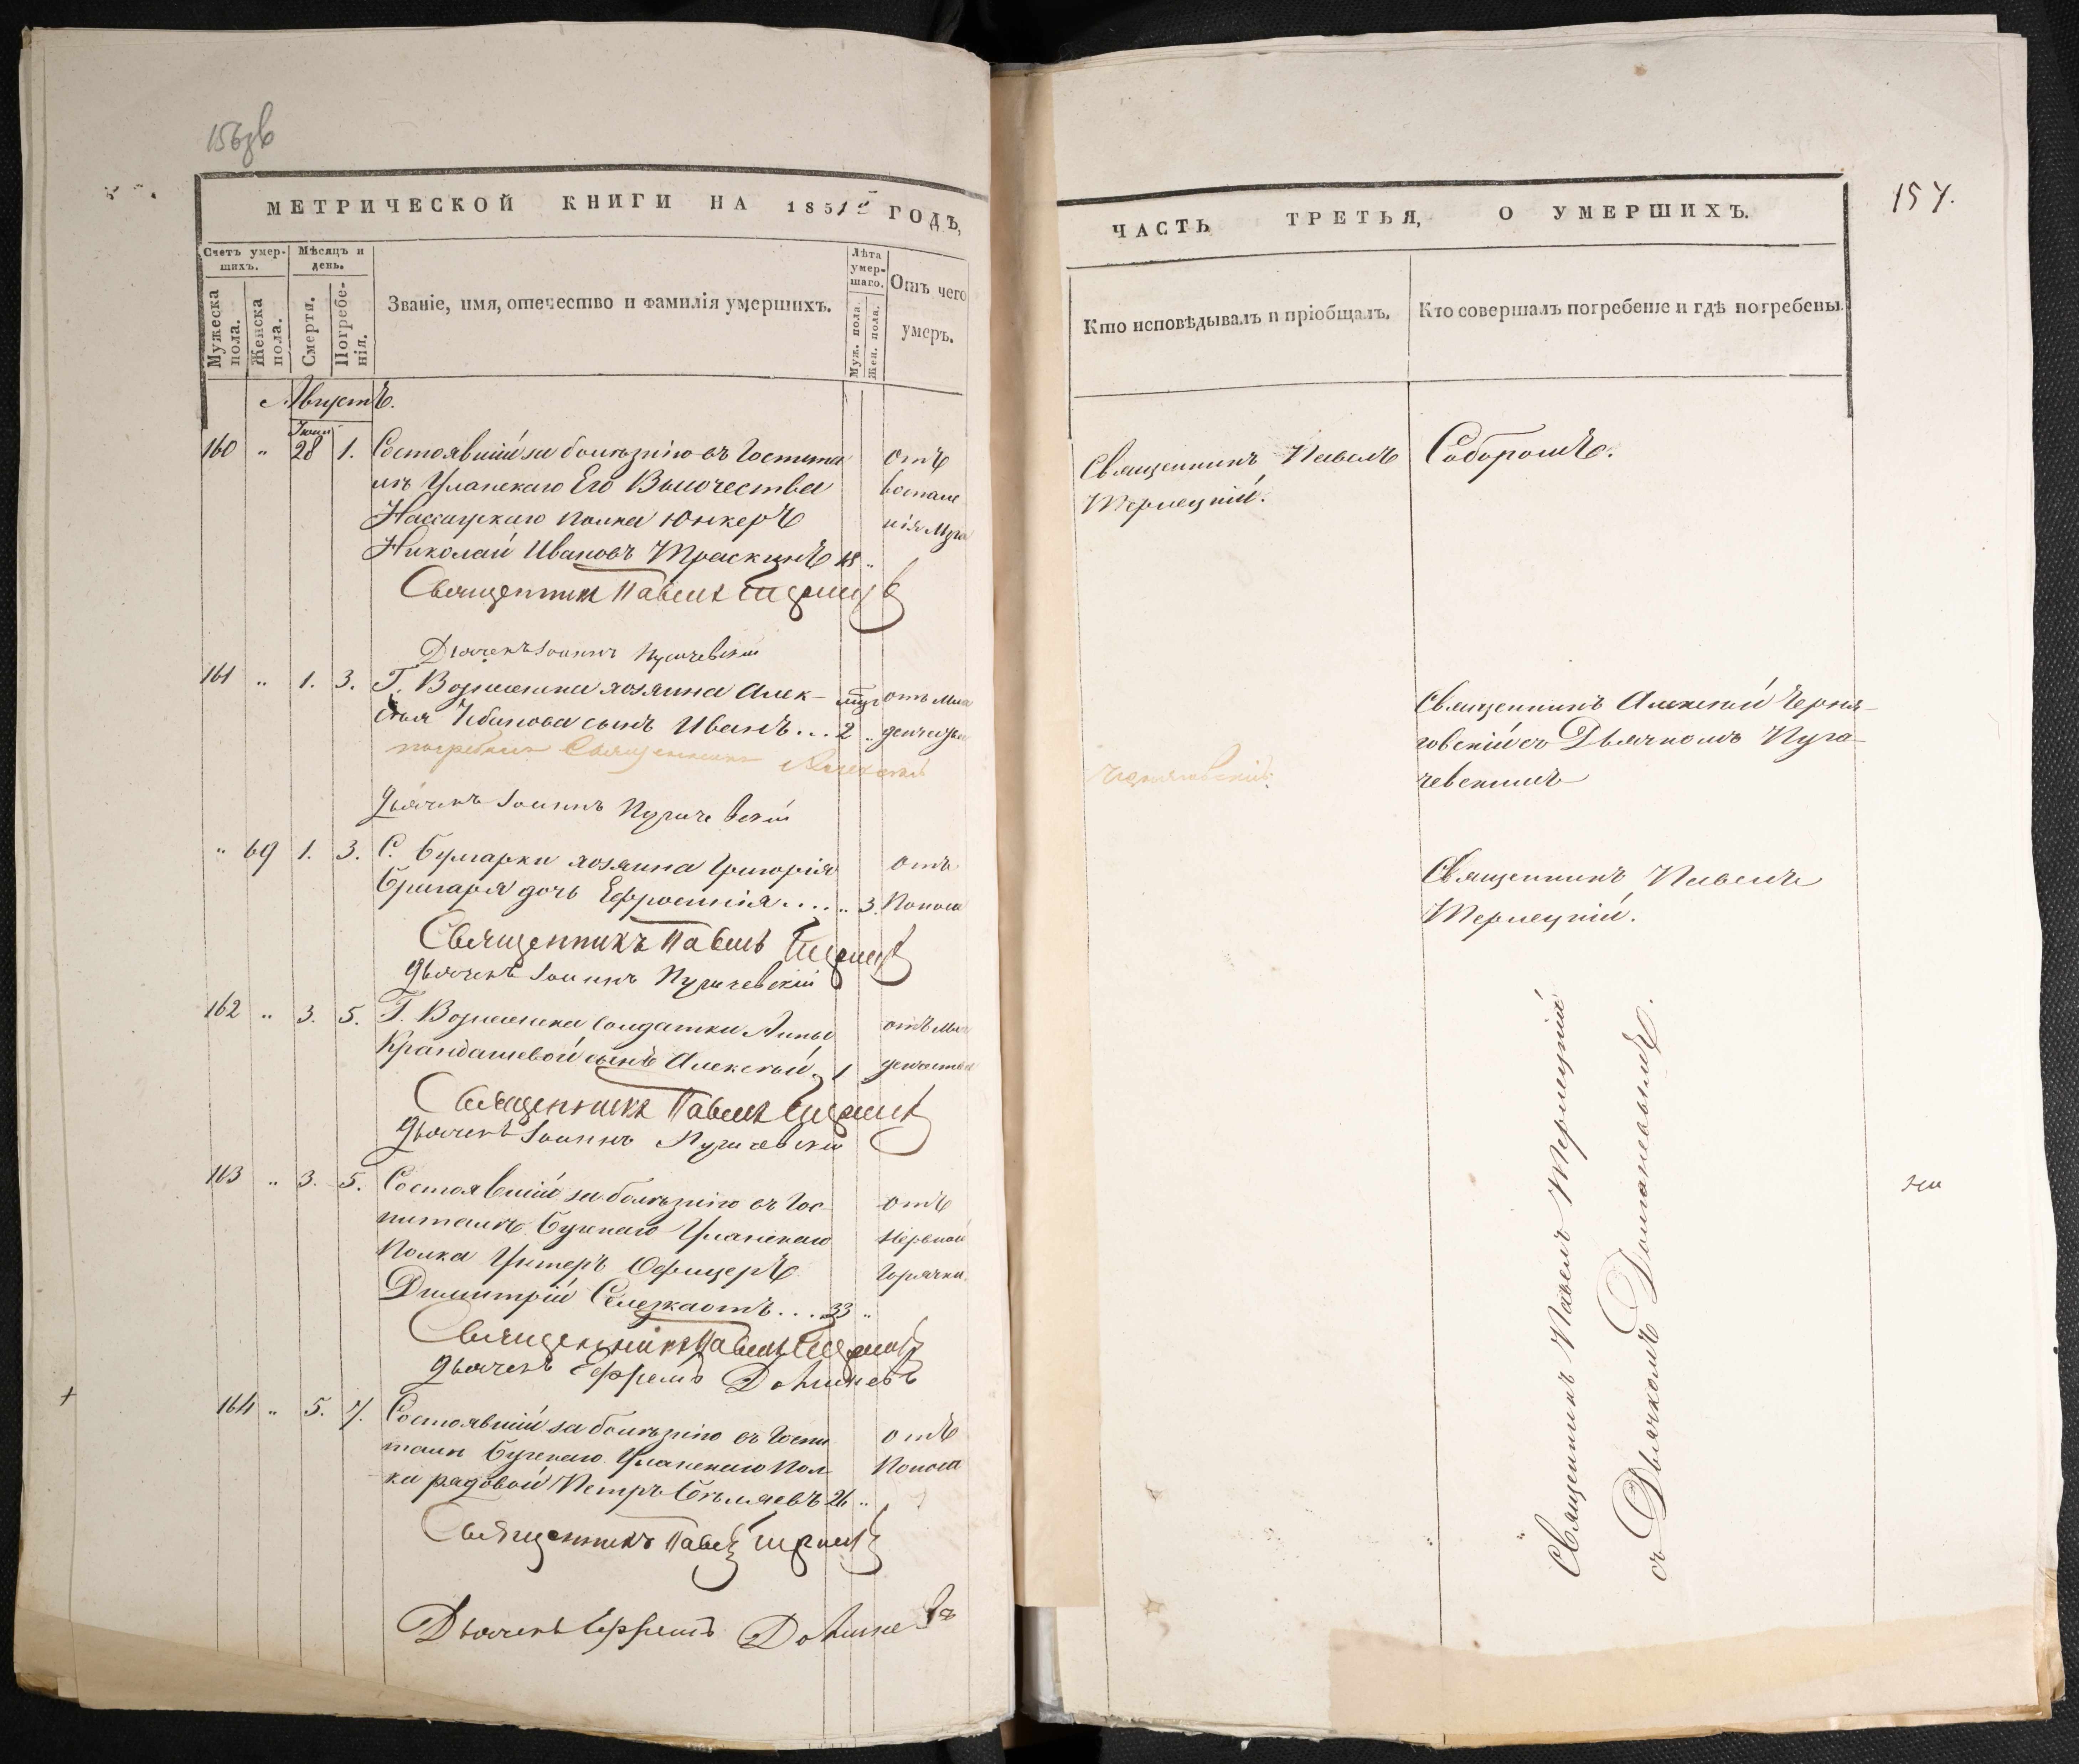 156 зв
МЕТРИЧЕСКОЙ КНИГИ НА 1851 ГОДЪ,
Счетъ умер-
шихъ.
Мѣсяцъ и
день.
Лѣта
умер-
шаго.
Мужеска
пола.
Женска
пола.
Смерти.
Погребе-
нія.
Званіе, имя, отечество и фамилія умершихъ.
Муж. пола
Жен. пола.
Отъ чего
умеръ.
Августъ.
160 " 28 1. Состоявшій за болѣзнію въ Госпита
лѣ Уланскаго Его Высочества
Нассаускаго полка Юнкеръ
Николай Ивановъ Траскинъ 18 "
отъ
воспале
нія Мозга
Священникъ Павелъ Терлецкій
Дьячекъ Іоаннъ Пугачевскій
161 " 1. 3. Г. Вознесенска хозяина Алек-
сѣя Чебанова сынъ Иванъ... 2 "
отъ Мла
денчества
погребалъ Священникъ Алексѣй
Дьячекъ Іоаннъ Пугачевскій
" 69 1. 3. С. Булгарки хозяина Григорія
Григораша дочь Ефросинія.... " 3.
отъ
Поноса
Священникъ Павелъ Терлецкій
Дьячекъ Іоаннъ Пугачевскій
162 " 3. 5. Г. Вознесенска солдатки Анны
Крандашевой сынъ Алексѣй. 1
отъ Мла
денчества
Священникъ Павелъ Терлецкій
Дьячекъ Іоаннъ Пугачевскій
163 " 3. 5. Состоявшій за болѣзнію въ Гос-
питалѣ Бугскаго Уланскаго
Полка Унтеръ Офицеръ
Димитрій ... 33 "
отъ
Нервной
Горячки.
Священникъ Павелъ Терлецкій
Дьячекъ Ефремъ
164 " 5. 7. Состоявшій за болѣзнію въ Госпи
талѣ Бугскаго Уланскаго Пол
ка рядовой Петръ Бѣляевъ 26 "
отъ
Поноса
Священникъ Павелъ Терлецкій
Дьячекъ Ефремъ
157.
ЧАСТЬ ТРЕТЬЯ, О УМЕРШИХЪ.
Кто исповѣдывалъ и пріобщалъ.
Кто совершалъ погребеніе и гдѣ погребены.
Священникъ Павелъ
Терлецкій.
Соборомъ.
Священникъ Алексѣй Черня-
говскій съ Дьячкомъ Пуга-
чевскимъ
Черняговскій.
Священникъ Павелъ
Терлецкій.
Священникъ Павелъ Терлецкій
съ Дьячкомъ